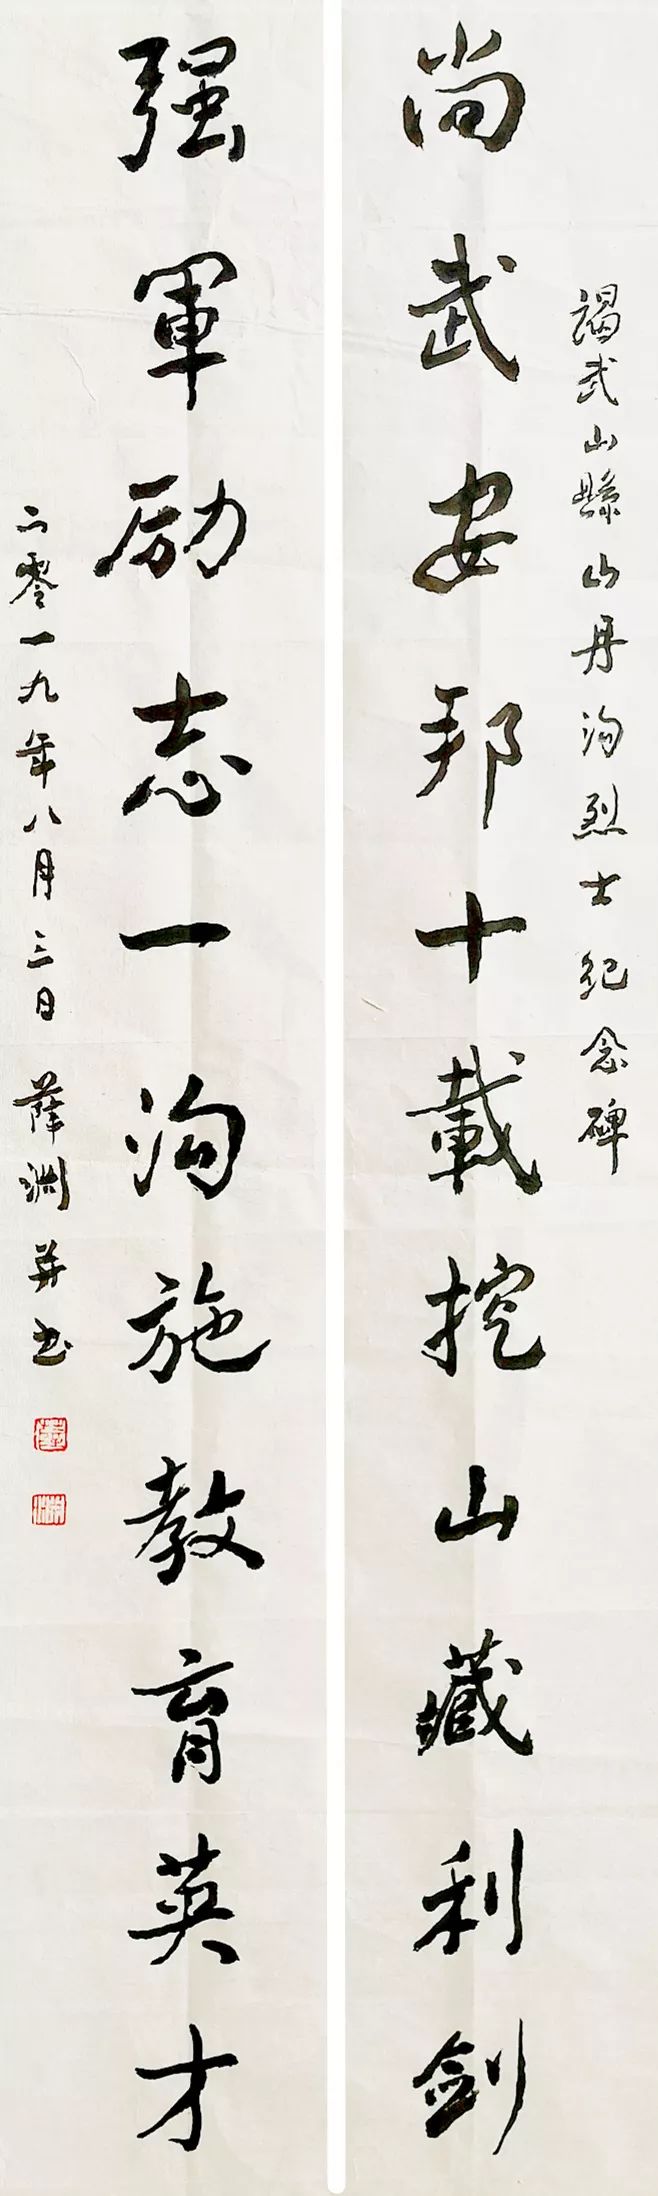 谒武山縣山丹沟烈士纪念碑
尚武安邦十載挖山藏利剑
强軍励志一沟施教育英才
二零一九年八月三日 薛渊并书